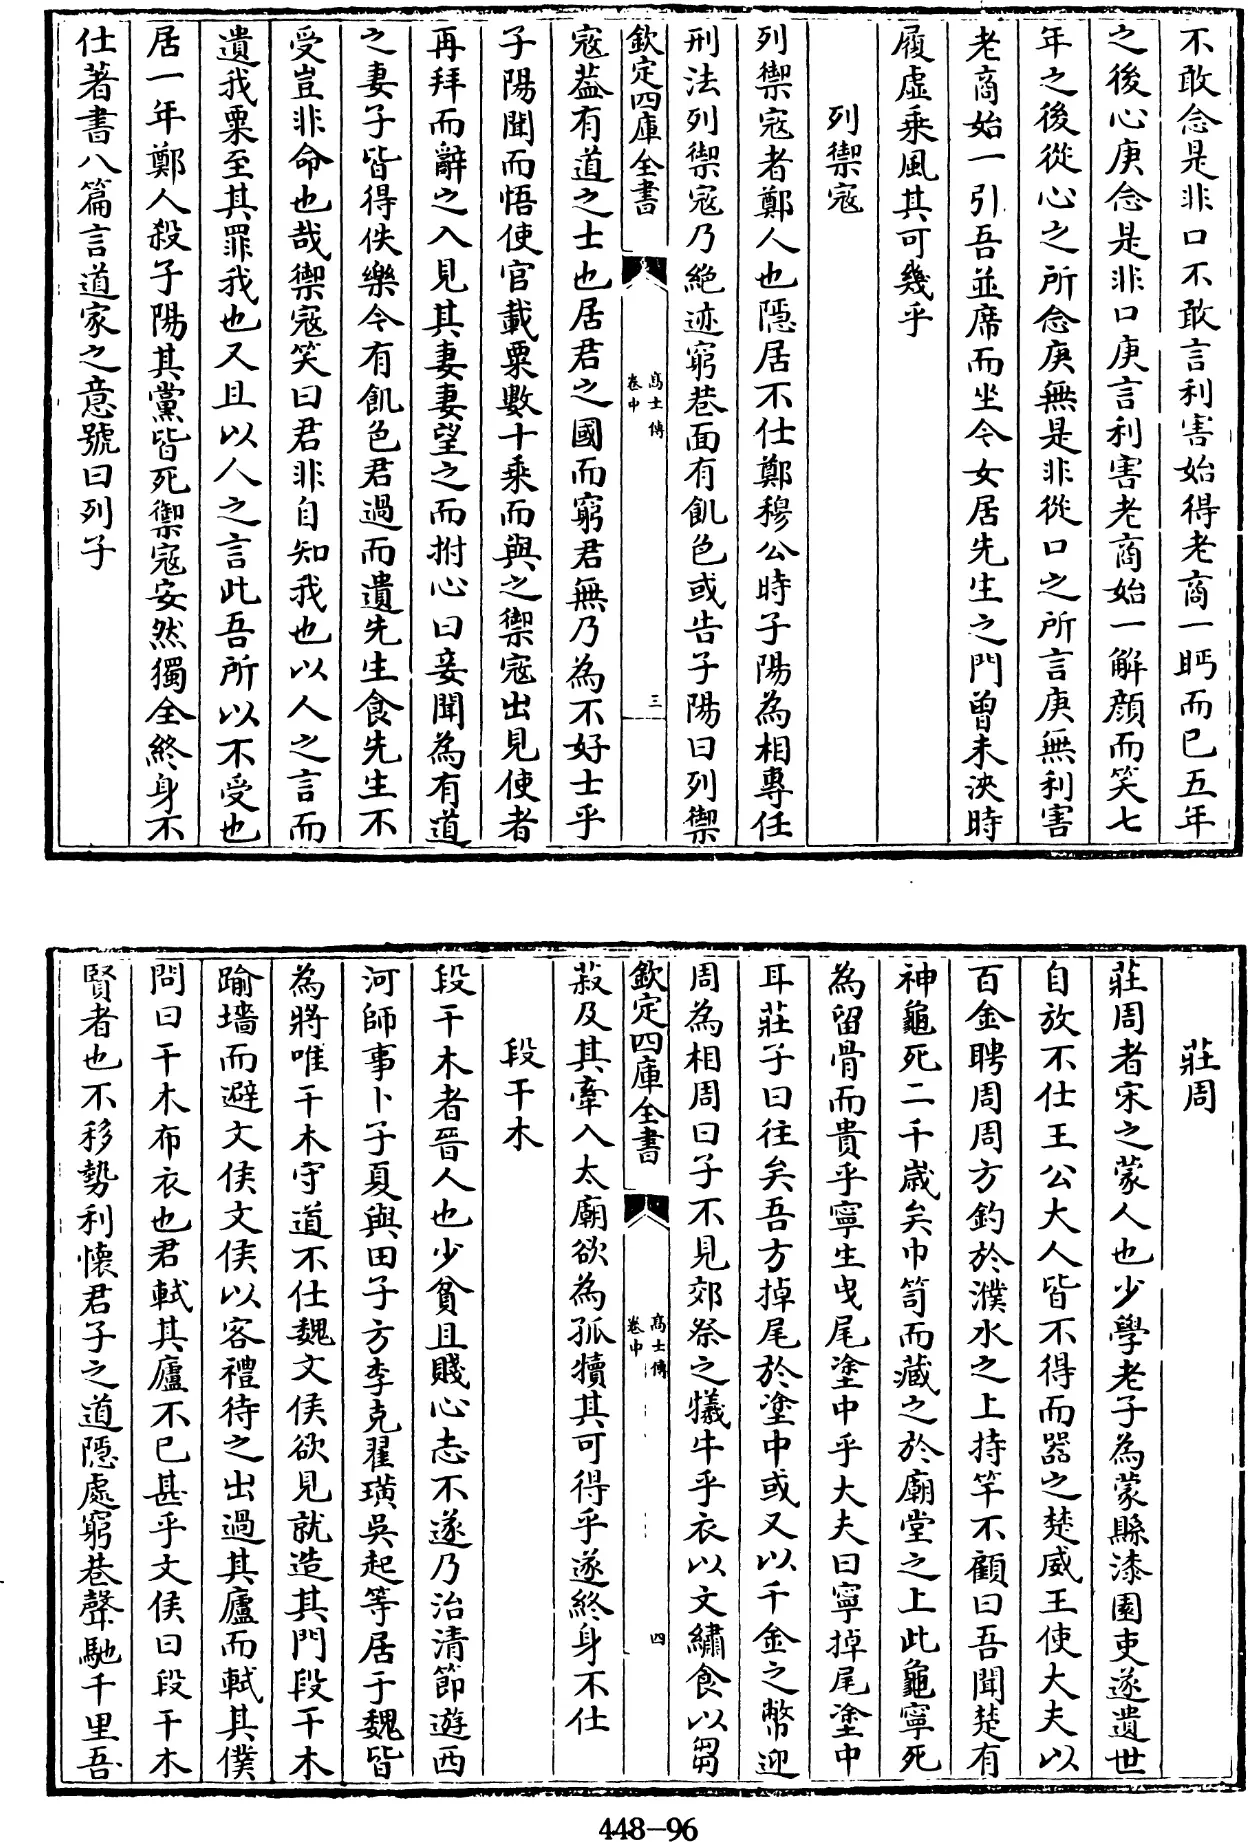 不敢念是非口不敢言利害始得老商一眄而已五年
之後心庚念是非口庚言利害老商始一解顔而笑七
年之後從心之所念庚無是非從口之所言庚無利害
老商始一引吾並席而坐今女居先生之門曽未浹時
履虛乗風其可幾乎
列禦寇
列禦寇者鄭人也隠居不仕鄭穆公時子陽為相專任
刑法列禦寇乃絶迹窮巷面有飢色或告子陽曰列禦
欽定四庫全書
髙士傳
卷中
三
寇葢有道之士也居君之國而窮君無乃為不好士乎
子陽聞而悟使官載粟數十乗而與之禦寇出見使者
再拜而辭之入見其妻妻望之而拊心曰妾聞為有道
之妻子皆得佚樂今有飢色君過而遺先生食先生不
受豈非命也哉禦寇笑曰君非自知我也以人之言而
遺我粟至其罪我也又且以人之言此吾所以不受也
居一年鄭人殺子陽其黨皆死禦寇安然獨全終身不
仕著書八篇言道家之意號曰列子
莊周
莊周者宋之蒙人也少學老子為蒙縣漆園吏遂遺世
自放不仕王公大人皆不得而器之楚威王使大夫以
百金聘周周方釣於濮水之上持竿不顧曰吾聞楚有
神龜死二千歳矣巾笥而藏之於廟堂之上此龜寧死
為留骨而貴乎寧生曵尾塗中乎大夫曰寧掉尾塗中
耳莊子曰往矣吾方掉尾於塗中或又以千金之幣迎
周為相周曰子不見郊祭之犧牛乎衣以文繡食以芻
欽定四庫全書
髙士傳
卷中
四
菽及其牽入太廟欲為孤犢其可得乎遂終身不仕
段干木
段干木者晉人也少貧且賤心志不遂乃治清節遊西
河師事卜子夏與田子方李克翟璜吳起等居于魏皆
為將唯干木守道不仕魏文侯欲見就造其門段干木
踰墻而避文侯文侯以客禮待之出過其廬而軾其僕
問曰干木布衣也君軾其廬不已甚乎文侯曰段干木
賢者也不移勢利懐君子之道隠處窮巷聲馳千里吾
448-96